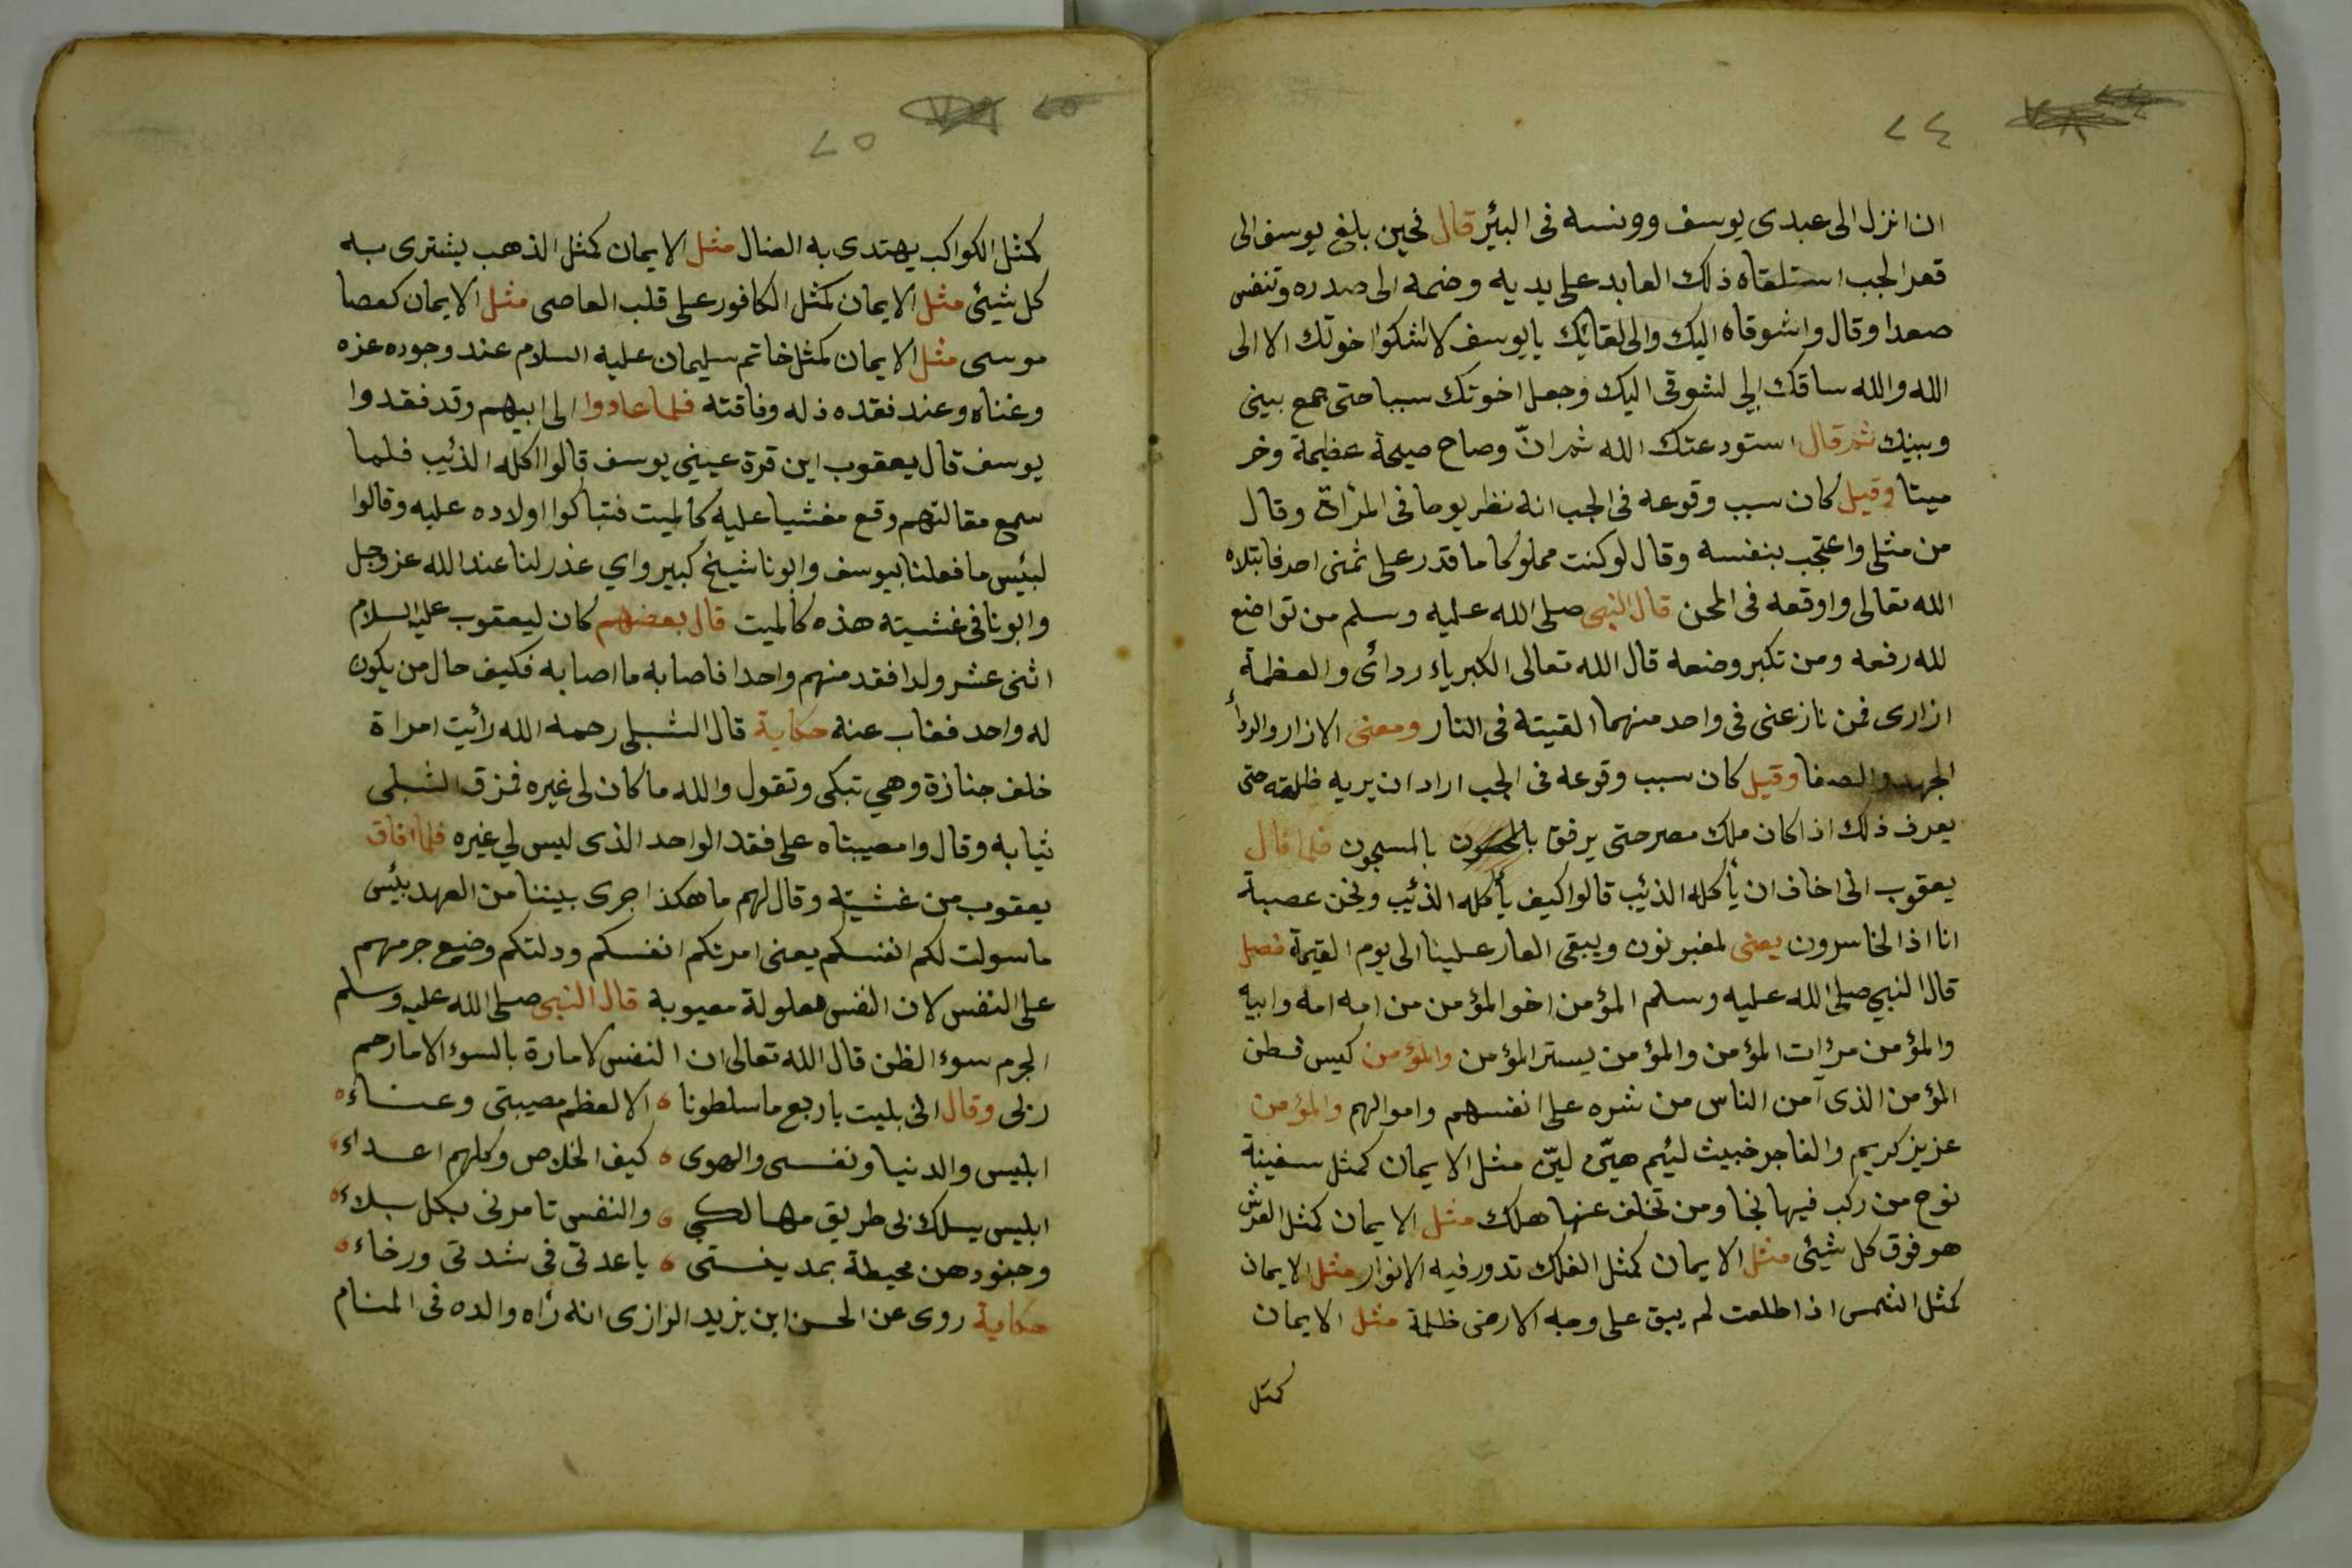 ٢٤
ان انزل الى عبدى يوسف وونسه فى البئر قال فحين بلغ يوسف الى
قعر الجب استلقاه ذلك العابد على يديه وضمه الى صدره وتنفس
صعدا وقال واشوقاه اليك والى لقائك يا يوسف لا تشكوا اخوتك الا الى
الله والله ساقك الي لشوقى اليك وجعل اخوتك سببا حتى جمع بينى
وبينك ثم قال استودعتك الله ثم انّ وصاح صيحة عظيمة وخر
ميتا وقيل كان سبب وقوعه فى الجب انه نظر يوما فى المرأة وقال
من مثلى واعتجب بنفسه وقال لو كنت مملوكا ما قدر على ثمنى احد فابتلاه
الله تعالى واوقعه فى المحن قال النبى صلى الله عليه وسلم من تواضع
لله رفعه ومن تكبر وضعه قال الله تعالى الكبرياء ردائى والعظمة
ازارى فمن نازعنى فى واحد منهما القيته فى النار ومعنى الازار والردأ
الجهد والصفا وقيل كان سبب وقوعه فى الجب اراد ان يريه ظلمته حتى
يعرف ذلك اذا كان ملك مصر حتى يرفق بالمسجون فلما قال
يعقوب انى اخاف ان يأكله الذئيب قالوا كيف يأكله الذئيب ونحن عصبة
انا اذا لخاسرون يعنى لمغبونون ويبقى العار علينا الى يوم القيمة فصل
قال النبي صلى الله عليه وسلم المؤمن اخو المؤمن من امه امه وابيه
والمؤمن مرؤات المؤمن والمؤمن يستر المؤمن والمؤمن كيس فطن
المؤمن الذى آمن الناس من شره على انفسهم واموالهم والمؤمن
عزيز كريم والفاجر خبيث لئيم هيّن ليّن مثل الايمان كمثل سفينة
نوح من ركب فيها نجا ومن تخلف عنها هلك مثل الايمان كمثل العرش
هو فوق كل شيئى مثل الايمان كمثل الفلك تدور فيه الانوار مثل الايمان
كمثل الشمس اذا طلعت لم يبق على وجه الارض ظلمة مثل الايمان
كمثل
٢٥
كمثل الكواكب يهتدى به الضال مثل الايمان كمثل الذهب يشترى به
كل شيئى مثل الايمان كمثل الكافور على قلب العاصى مثل الايمان كعصا
موسى مثل الايمان كمثل خاتم سليمان عليه السلام عند وجوده عزه
وغناه وعند فقده ذله وفاقته فلما عادوا الى ابيهم وقد فقدوا
يوسف قال يعقوب اين قرة عيني يوسف قالوا اكله الذئيب فلما
سمع مقالتهم وقع مغشيا عليه كالميت فتباكوا اولاده عليه وقالوا
لبئيس ما فعلنا بيوسف وابونا شيخ كبير واي عذر لنا عند الله عز وجل
وابونا فى غشيته هذه كالميت قال بعضهم كان ليعقوب عليه السلام
اثنى عشر ولدا فقد منهم واحدا فاصابه ما اصابه فكيف حال من يكون
له واحد فغاب عنه حكاية قال الشبلى رحمه الله رأيت امراة
خلف جنازة وهي تبكى وتقول والله ما كان لى غيره فمزق الشبلى
ثيابه وقال وامصيبتاه على فقد الواحد الذى ليس لي غيره فلما افاق
يعقوب من غشيته وقال لهم ما هكذا جرى بيننا من العهد بئيس
ما سولت لكم انفسكم يعنى امرتكم انفسكم ودلتكم وضيع جرمهم
على النفس لان النفس معلولة معيوبة قال النبى صلى الله عليه وسلم
الجرم سوء الظن قال الله تعالى ان النفس لامارة بالسوء الا ما رحم
ربى وقال انى بليت باربع ما سلطونا ه الا لعظم مصيبتى وعناء ه
ابليس والدنيا ونفسى والهوى ه كيف الخلاص وكلهم اعداء
ابليس يسلك بى طريق مهالكي ه والنفس تامرنى بكل بلاء ه
وجنودهن محيطة بمدينتى ه يا عدتى فى شدتى ورخاء ه
حكاية روى عن الحسن ابن يزيد الرازى انه رأه والده فى المنام